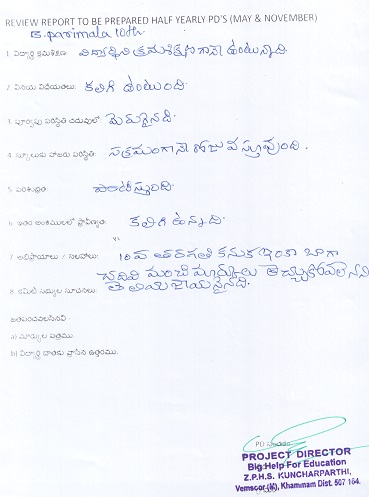 REVIEW REPORT TO BE PREPARED HALF YEARLY PD'S (MAY & NOVEMBER)
B. parimala 10th
1. విద్యార్థి క్రమశిక్షణ: విద్యార్థిని క్రమశిక్షణగానే ఉంటున్నది
2. వినయ విధేయతలు: కలిగి ఉంటుంది.
3. పూర్వపు పరిస్థితి చదువులో: మెరుగైనది.
4. స్కూలుకు హాజరు పరిస్థితి: సక్రమంగానే రోజు వస్తూవుంది.
5. పరిశుభ్రత: పాటిస్తుంది.
6. ఇతర అంశములలో ప్రావీణ్యత: కలిగి ఉన్నది.
7. అభిప్రాయాలు / సలహాలు: 10వ తరగతి కనుక ఇంకా బాగా
చదివి మంచి మార్కులు తెచ్చుకోవలెనని
8. కమిటీ సభ్యుల సూచనలు: తెలియజేయనైనది.
జతపరచవలసినవి -
a) మార్కుల పత్రము.
b) విద్యార్థి దాతకు వ్రాసిన ఉత్తరము.
PD సంతకం
PROJECT DIRECTOR
Big Help For Education
Z.P.H.S. KUNCHARPARTHI,
Vemsoor (M), Khammam Dist. 507 164.